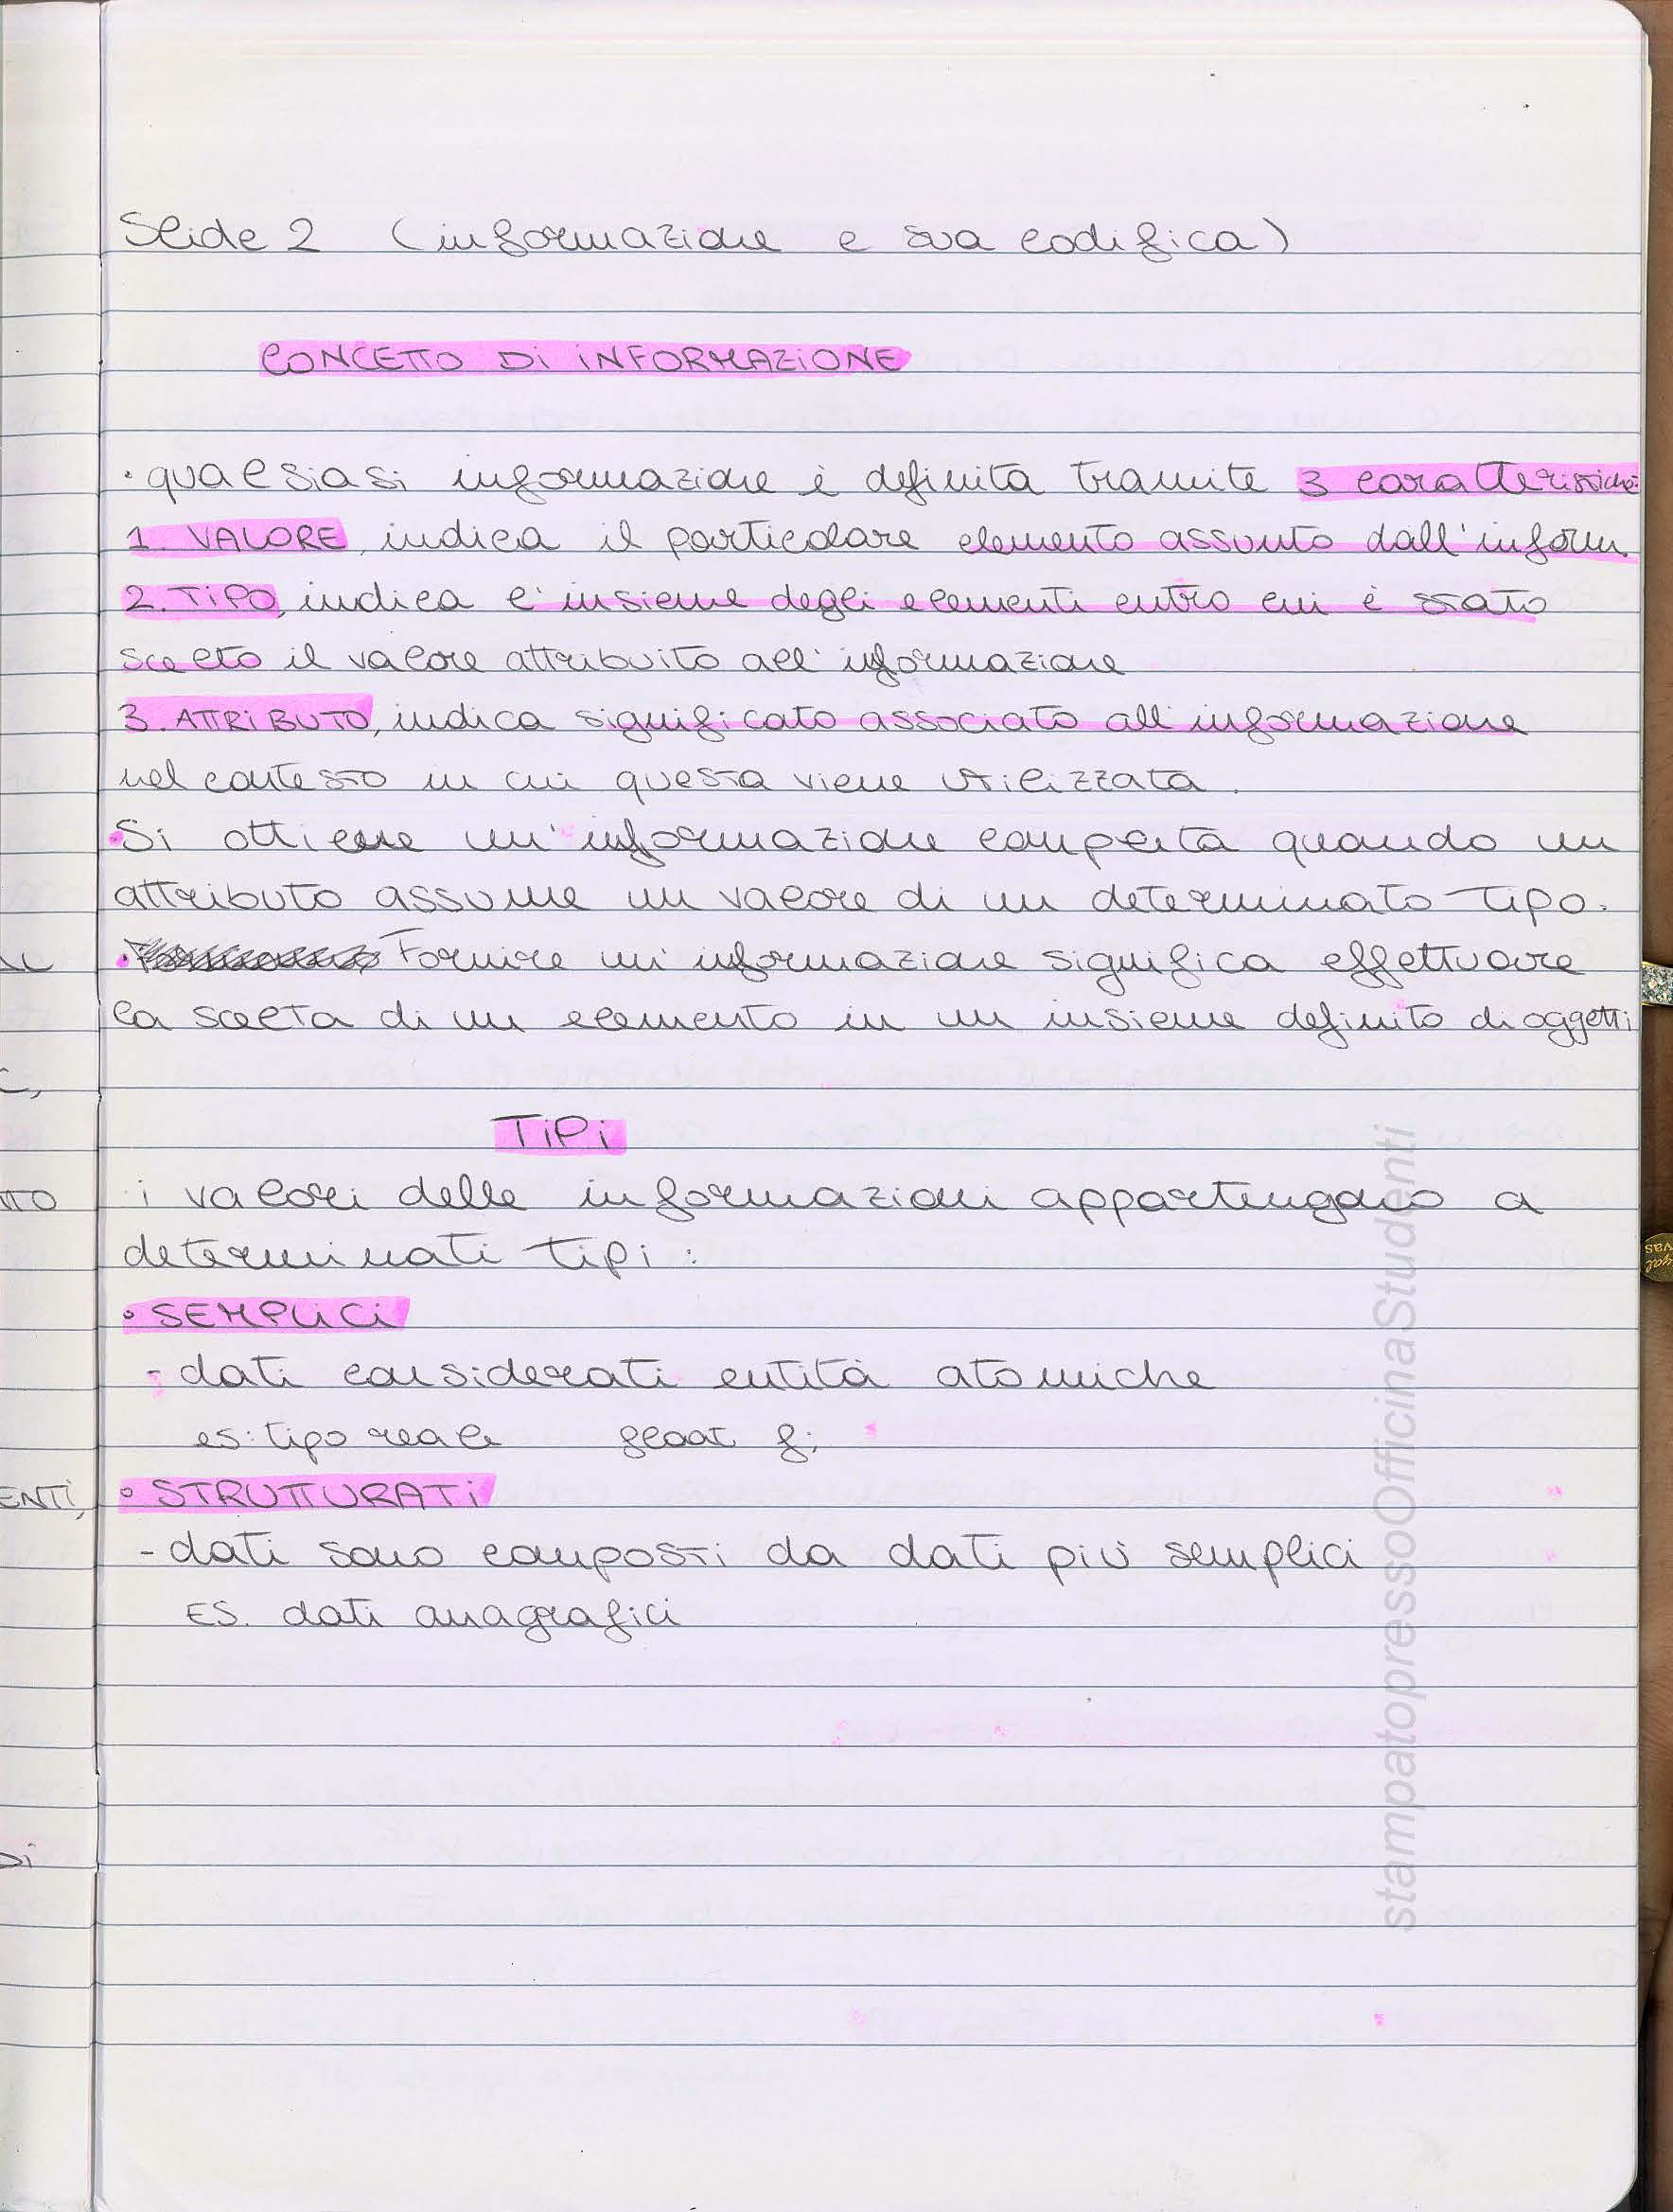 Slide 2 (informazione e sua codifica)
CONCETTO DI INFORMAZIONE
• qualsiasi informazione è definita tramite 3 caratteristiche:
1. VALORE, indica il particolare elemento assunto dall'inform.
2. TIPO, indica l'insieme degli elementi entro cui è stato
scelto il valore attribuito all'informazione
3. ATTRIBUTO, indica significato associato all'informazione
nel contesto in cui questa viene utilizzata.
• Si ottiene un'informazione comperta quando un
attributo assume un valore di un determinato tipo.
• Fornire un'informazione significa effettuare
la scelta di un elemento in un insieme definito di oggetti
TIPI
i valori delle informazioni appartengano a
determinati tipi:
• SEMPLICI
- dati considerati entità atomiche
es: tipo reale float f;
• STRUTTURATI
- dati sono composti da dati più semplici
ES. dati anagrafici
TTO
ENTI,
Di
stampatopressoOfficinaStudenti